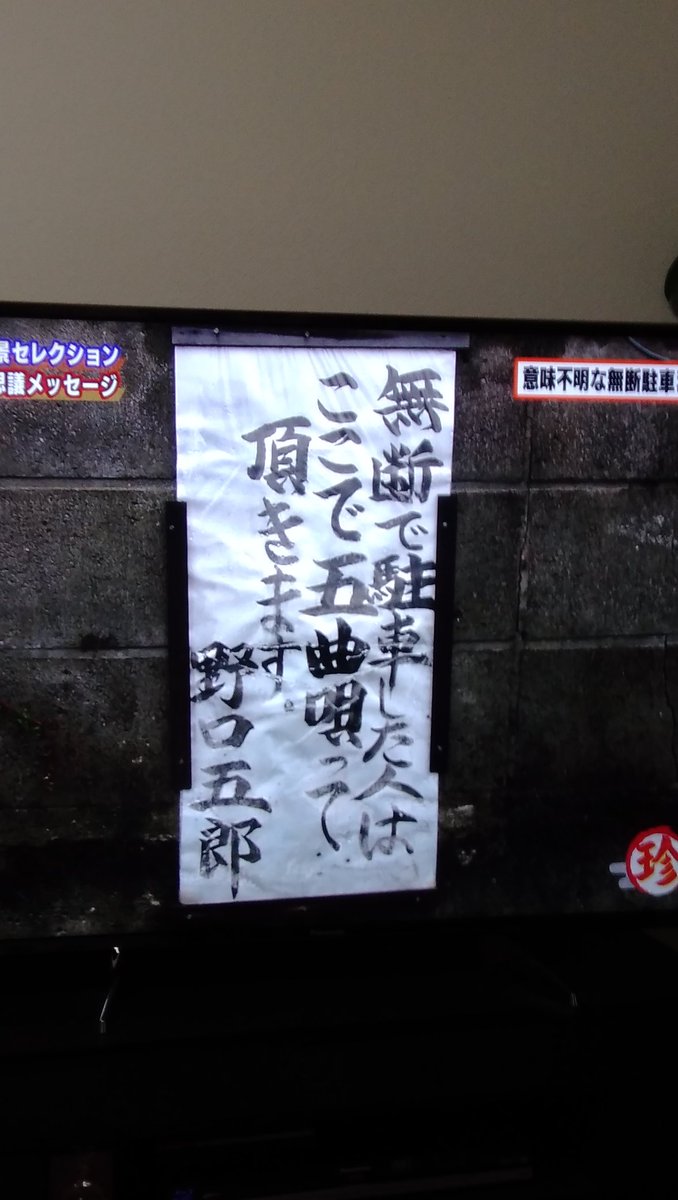 景セレクション
思議メッセージ
意味不明な無断駐車
無断で駐車した人は
ここで五曲唄って
頂きます。
野口五郎
珍